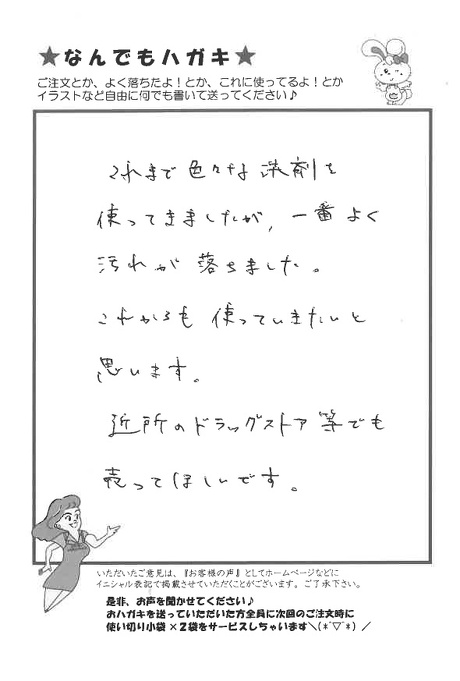 ★なんでもハガキ★
ご注文とか、よく落ちたよ！とか、これに使ってるよ！とか
イラストなど自由に何でも書いて送ってください♪
これまで色々な洗剤を
使ってきましたが、一番よく
汚れが落ちました。
これからも使っていきたいと
思います。
近所のドラッグストア等でも
売ってほしいです。
いただいたご意見は、『お客様の声』としてホームページなどに
イニシャル表記で掲載させていただくことがございます。ご了承下さい。
是非、お声を聞かせてください♪
おハガキを送っていただいた方全員に次回のご注文時に
使い切り小袋×2袋をサービスしちゃいます＼(*ˊ▽ˋ*)／